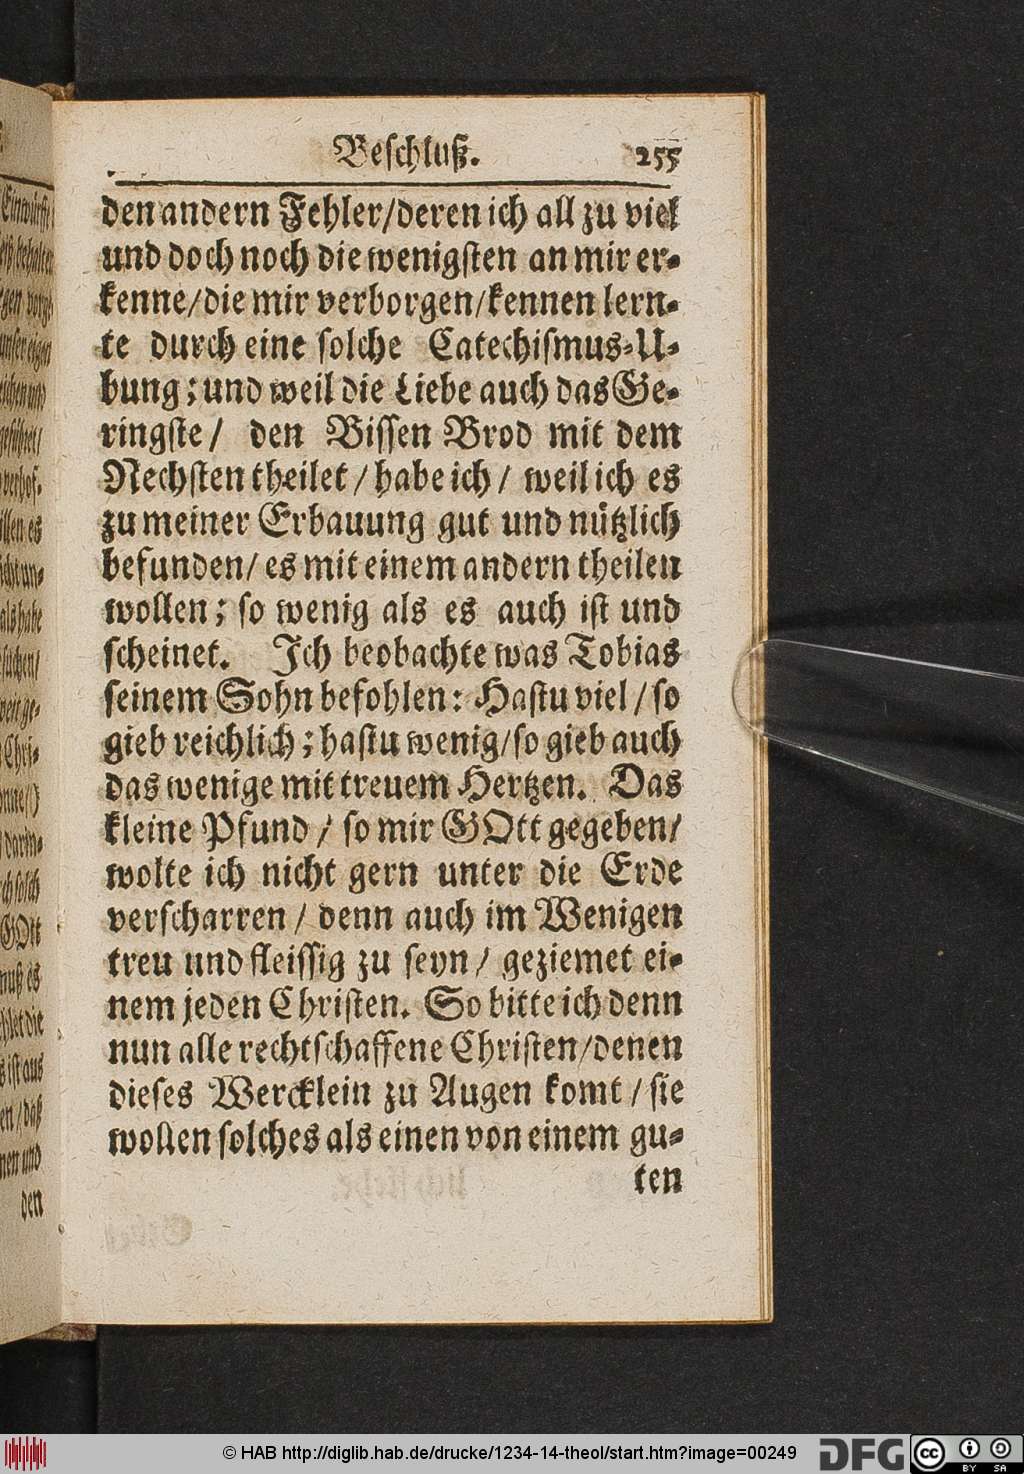 Beschluß. 255
den andern Fehler/deren ich all zu viel
und doch noch die wenigsten an mir er-
kenne/die mir verborgen/kennen lern-
te durch eine solche Catechismus-U-
bung; und weil die Liebe auch das Ge-
ringste/ den Bissen Brod mit dem
Nechsten theilet/ habe ich/ weil ich es
zu meiner Erbauung gut und nützlich
befunden/ es mit einem andern theilen
wollen; so wenig als es auch ist und
scheinet. Ich beobachte was Tobias
seinem Sohn befohlen: Hastu viel/ so
gieb reichlich; hastu wenig/so gieb auch
das wenige mit treuem Hertzen. Das
kleine Pfund/ so mir GOtt gegeben/
wolte ich nicht gern unter die Erde
verscharren/ denn auch im Wenigen
treu und fleissig zu seyn/ geziemet ei-
nem jeden Christen. So bitte ich denn
nun alle rechtschaffene Christen/denen
dieses Wercklein zu Augen komt/ sie
wollen solches als einen von einem gu-
ten
© HAB http://diglib.hab.de/drucke/1234-14-theol/start.htm?image=00249
DFG
CC BY SA